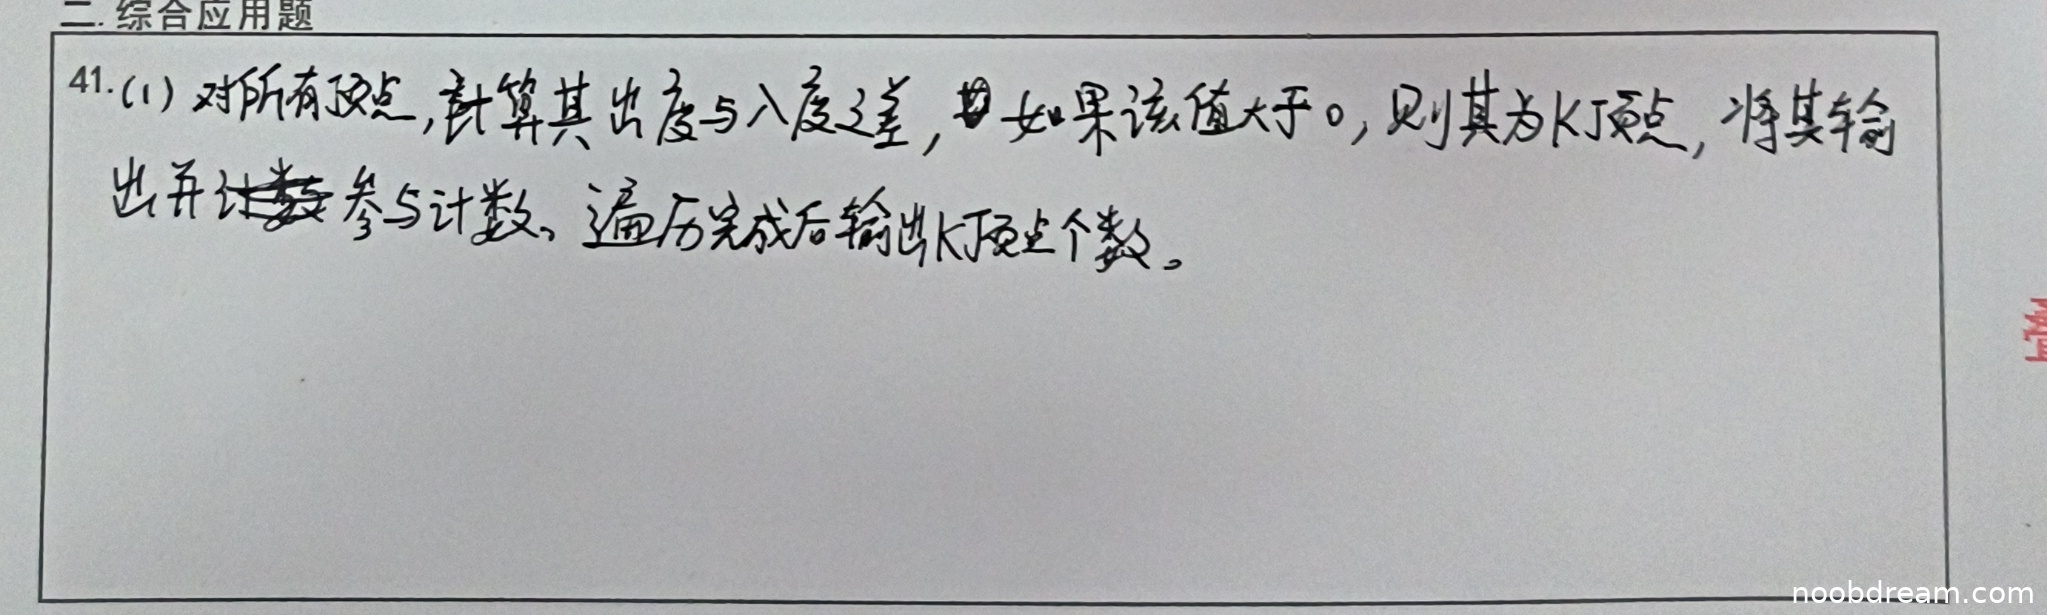 二. 综合应用题
41. (1) 对所有顶点,计算其出度与入度之差, 如果该值大于0, 则其为K顶点, 将其输
出并参与计数。遍历完成后输出K顶点个数。
noobdream.com